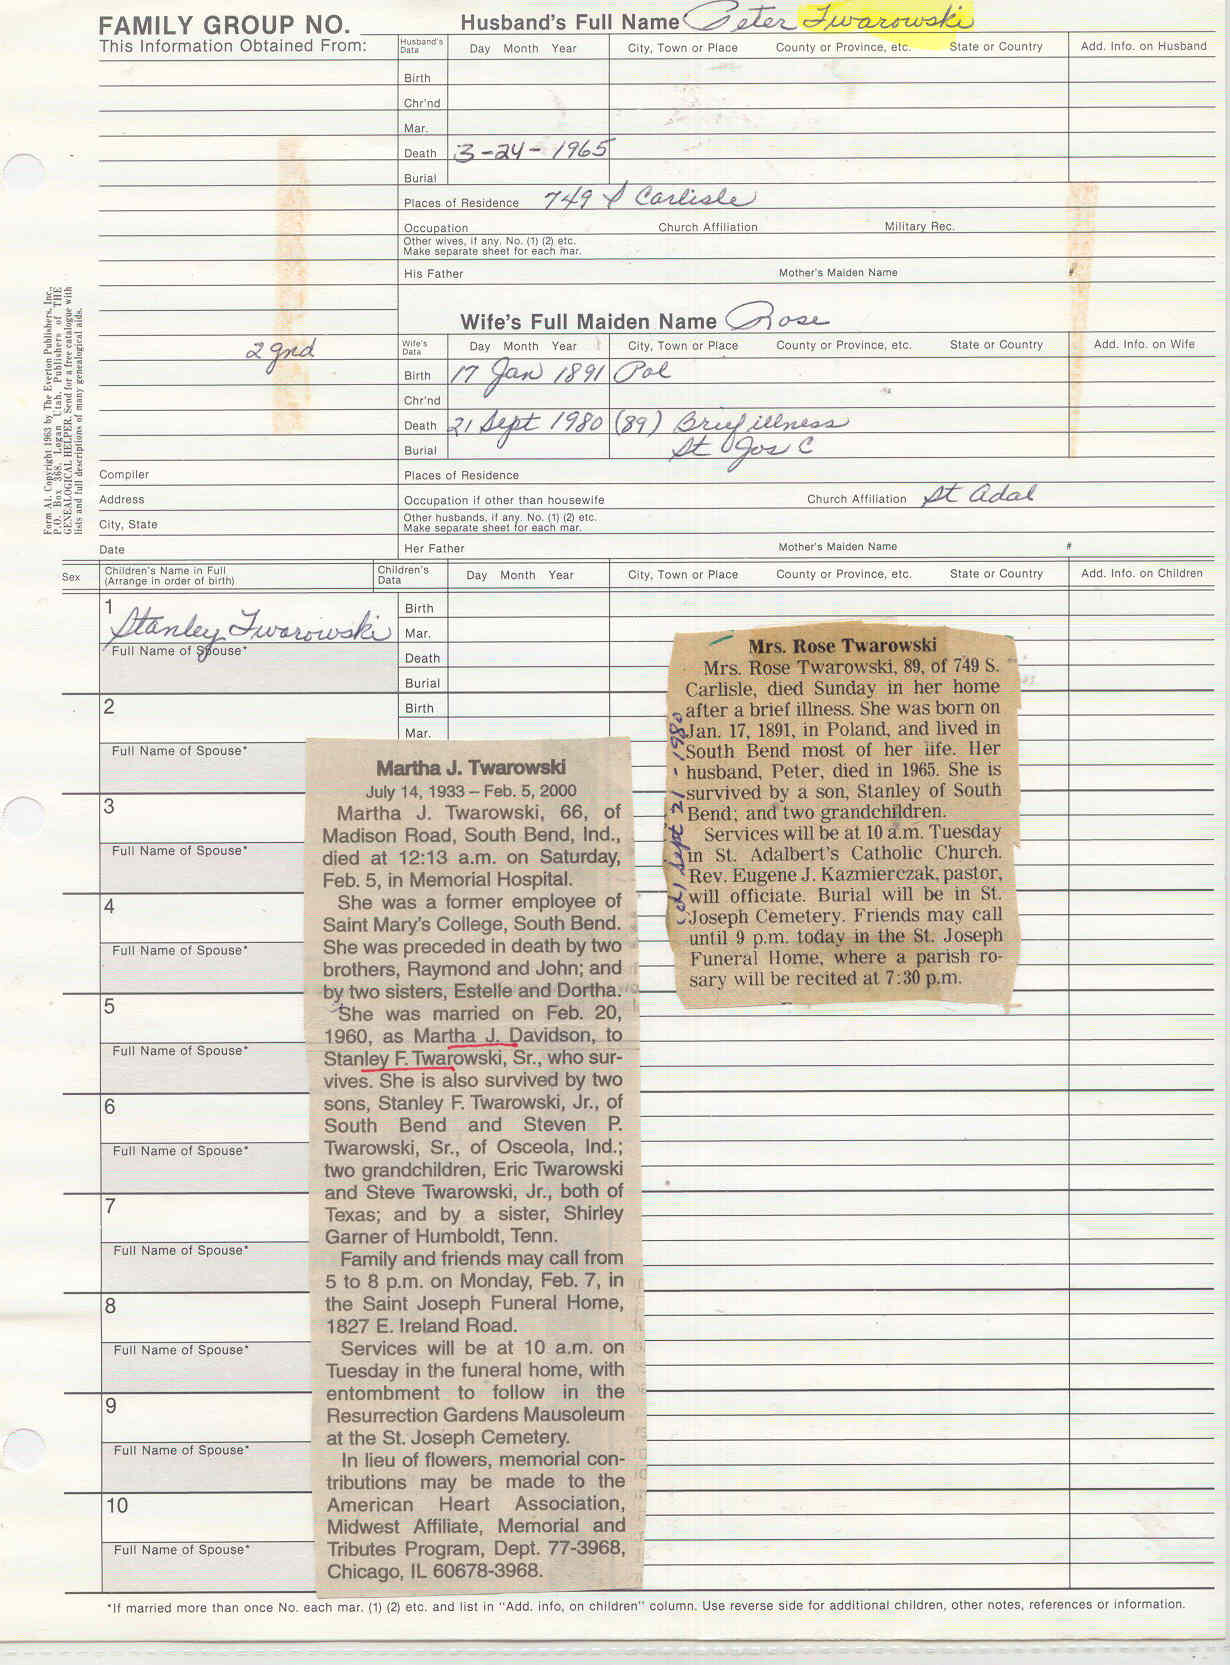 FAMILY GROUP NO.
Husband's Full Name Peter Twarowski
This Information Obtained From:
Husband's Data Day Month Year City, Town or Place County or Province, etc. State or Country Add. Info. on Husband
Birth
Chr'nd
Mar.
Death 3-24-1965
Burial
Places of Residence 749 S Carlisle
Occupation Church Affiliation Military Rec.
Other wives, if any. No. (1) (2) etc.
Make separate sheet for each mar.
His Father Mother's Maiden Name
Wife's Full Maiden Name Rose
2 gnd
Wife's Data Day Month Year City, Town or Place County or Province, etc. State or Country Add. Info. on Wife
Birth 17 Jan 1891 Pol
Chr'nd
Death 21 Sept 1980 (89) Brief illness
Burial St Jos C
Compiler Places of Residence
Address Occupation if other than housewife Church Affiliation St Adal
City, State Other husbands, if any. No. (1) (2) etc.
Make separate sheet for each mar.
Date Her Father Mother's Maiden Name #
Form A1. Copyright 1963 by The Everton Publishers, Inc.,
P.O. Box 368, Logan Utah, Publishers of THE
GENEALOGICAL HELPER. Send for a free catalogue with
lists and full descriptions of many genealogical aids.
Sex Children's Name in Full (Arrange in order of birth) Children's Data Day Month Year City, Town or Place County or Province, etc. State or Country Add. Info. on Children
1 Birth
Stanley Twarowski Mar.
Full Name of Spouse* Death
Burial
2 Birth
Mar.
Full Name of Spouse*
3
Full Name of Spouse*
4
Full Name of Spouse*
5
Full Name of Spouse*
6
Full Name of Spouse*
7
Full Name of Spouse*
8
Full Name of Spouse*
9
Full Name of Spouse*
10
Full Name of Spouse*
Martha J. Twarowski
July 14, 1933 – Feb. 5, 2000
Martha J. Twarowski, 66, of
Madison Road, South Bend, Ind.,
died at 12:13 a.m. on Saturday,
Feb. 5, in Memorial Hospital.
She was a former employee of
Saint Mary's College, South Bend.
She was preceded in death by two
brothers, Raymond and John; and
by two sisters, Estelle and Dortha.
She was married on Feb. 20,
1960, as Martha J. Davidson, to
Stanley F. Twarowski, Sr., who sur-
vives. She is also survived by two
sons, Stanley F. Twarowski, Jr., of
South Bend and Steven P.
Twarowski, Sr., of Osceola, Ind.;
two grandchildren, Eric Twarowski
and Steve Twarowski, Jr., both of
Texas; and by a sister, Shirley
Garner of Humboldt, Tenn.
Family and friends may call from
5 to 8 p.m. on Monday, Feb. 7, in
the Saint Joseph Funeral Home,
1827 E. Ireland Road.
Services will be at 10 a.m. on
Tuesday in the funeral home, with
entombment to follow in the
Resurrection Gardens Mausoleum
at the St. Joseph Cemetery.
In lieu of flowers, memorial con-
tributions may be made to the
American Heart Association,
Midwest Affiliate, Memorial and
Tributes Program, Dept. 77-3968,
Chicago, IL 60678-3968.
Mrs. Rose Twarowski
Mrs. Rose Twarowski, 89, of 749 S.
Carlisle, died Sunday in her home
after a brief illness. She was born on
Jan. 17, 1891, in Poland, and lived in
South Bend most of her life. Her
husband, Peter, died in 1965. She is
survived by a son, Stanley of South
Bend; and two grandchildren.
Services will be at 10 a.m. Tuesday
in St. Adalbert's Catholic Church.
Rev. Eugene J. Kazmierczak, pastor,
will officiate. Burial will be in St.
Joseph Cemetery. Friends may call
until 9 p.m. today in the St. Joseph
Funeral Home, where a parish ro-
sary will be recited at 7:30 p.m.
(d) Sept 21 - 1980
*If married more than once No. each mar. (1) (2) etc. and list in "Add. info, on children" column. Use reverse side for additional children, other notes, references or information.